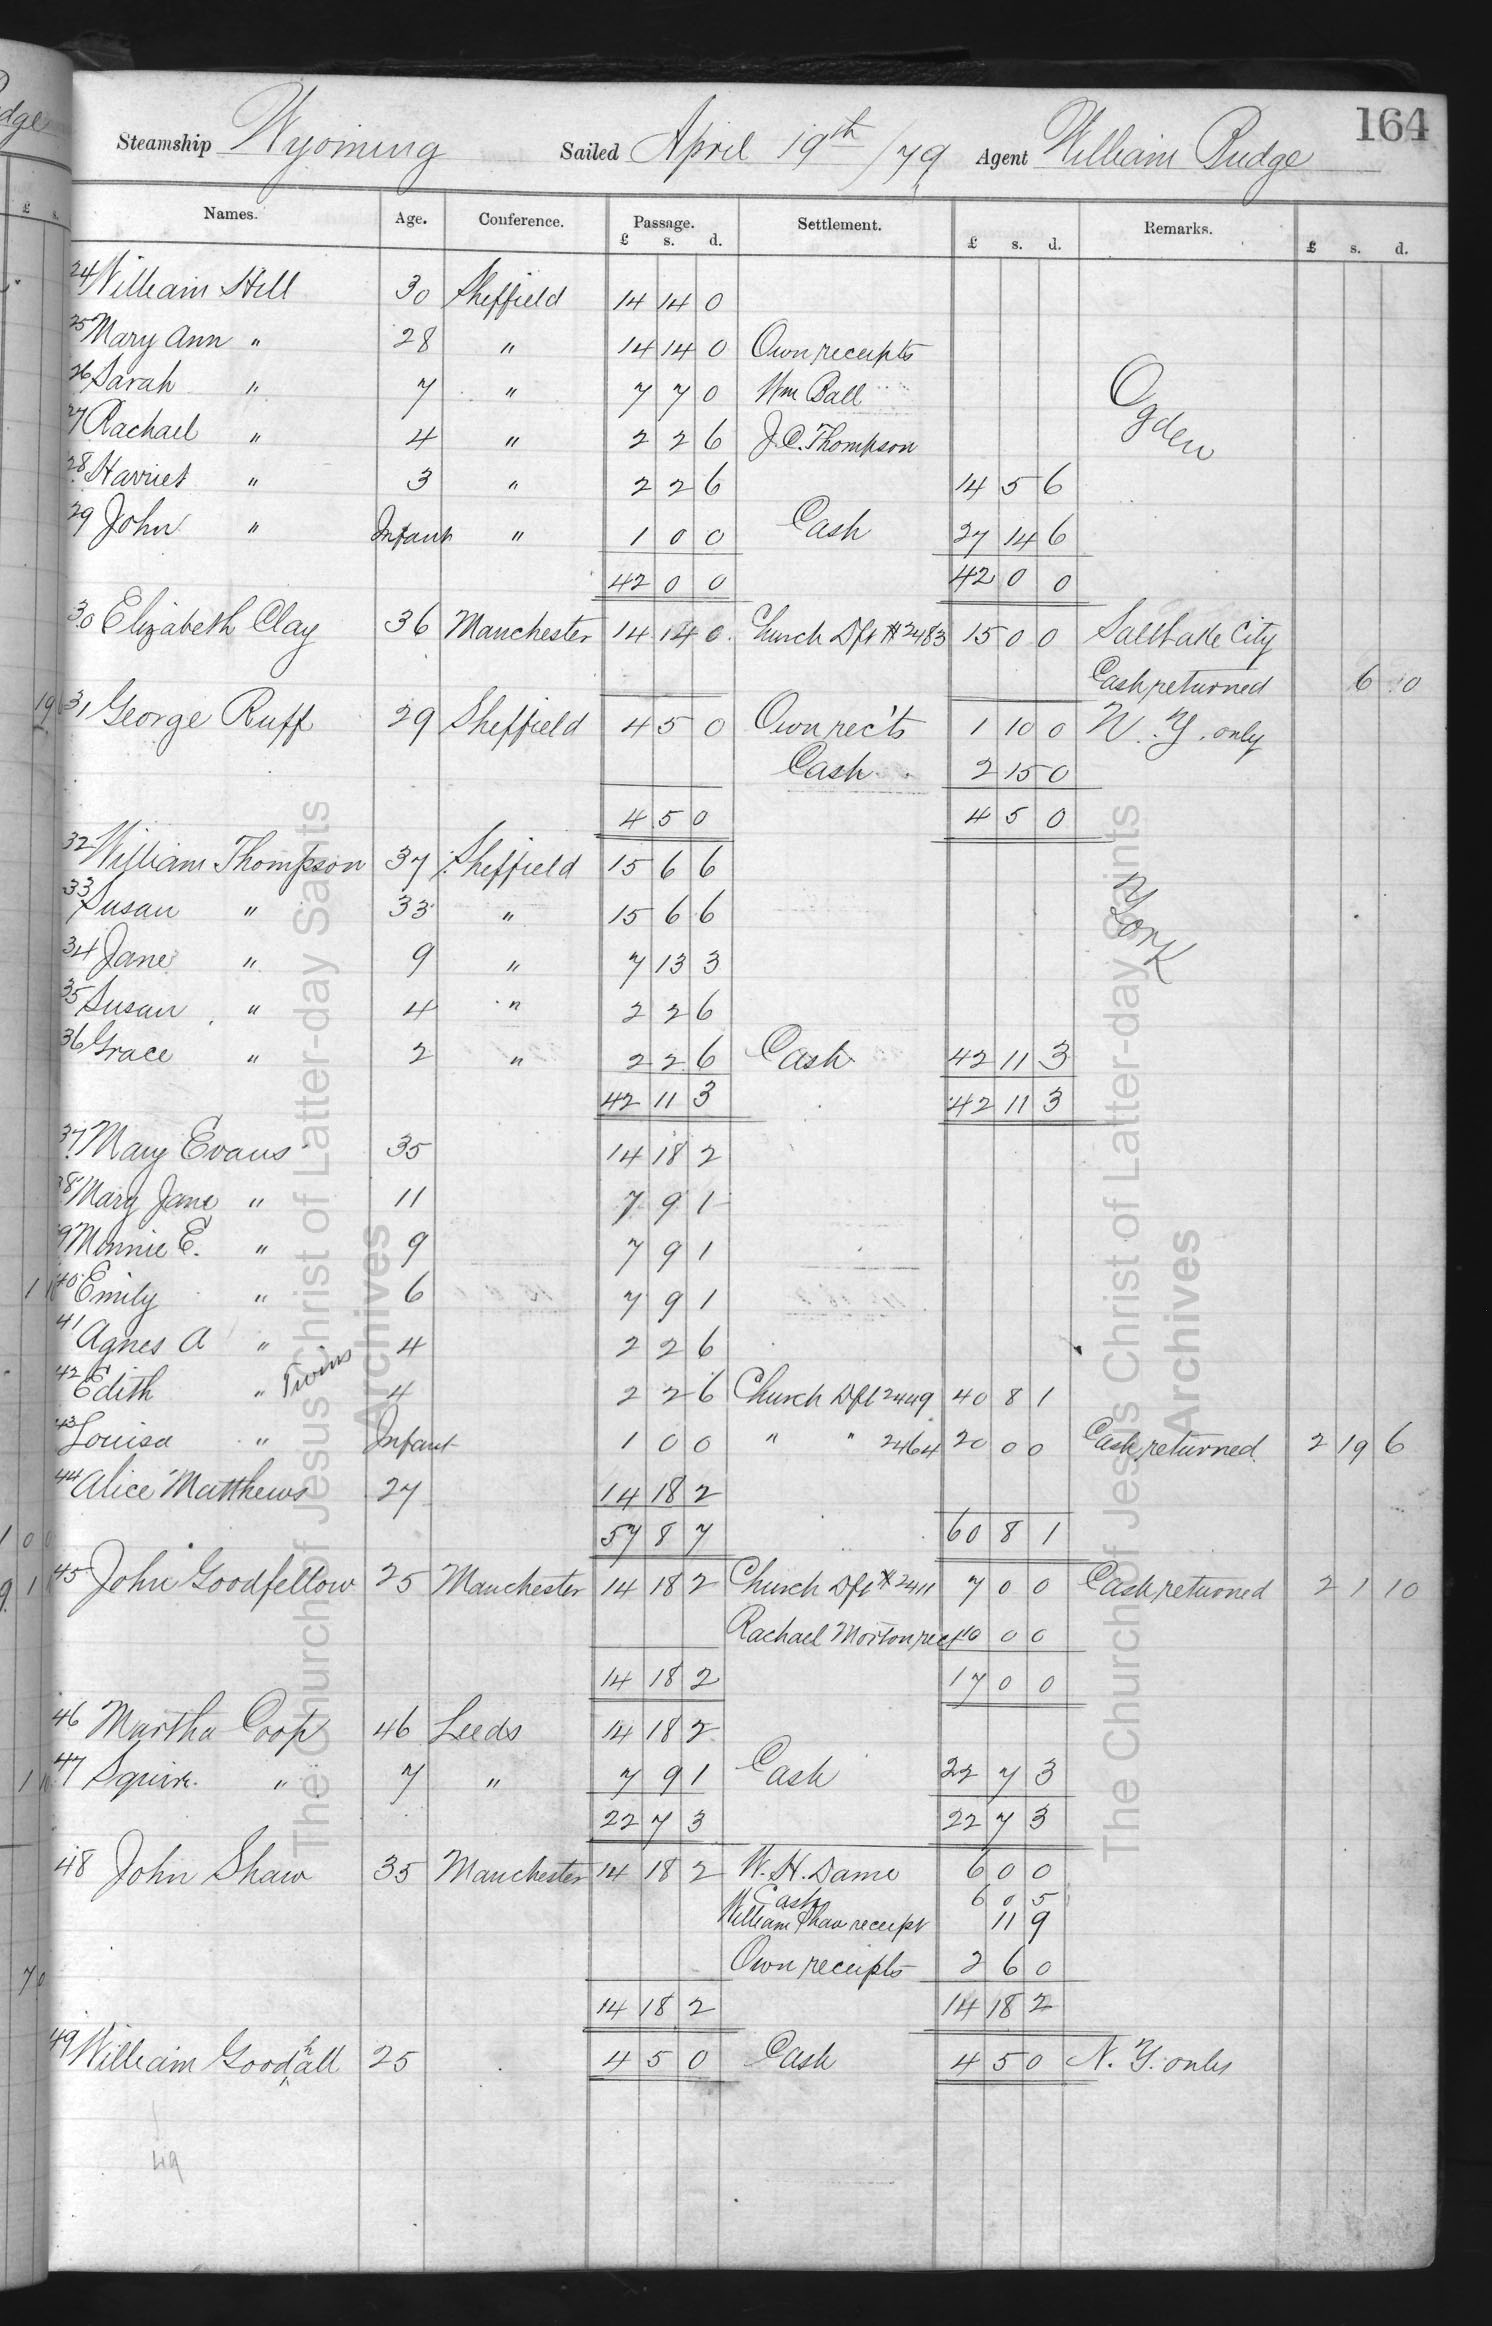 164
Steamship Wyoming Sailed April 19th /79 Agent William Budge
Names. Age. Conference. Passage. Settlement. Remarks.
£ s. d. £ s. d. £ s. d.
24 William Hill 30 Sheffield 14 14 0
25 Mary Ann " 28 " 14 14 0 Own receipts
26 Sarah " 7 " 7 7 0 Wm Ball Ogden
27 Rachael " 4 " 2 2 6 J.C. Thompson
28 Harriet " 3 " 2 2 6 14 5 6
29 John " Infant " 1 0 0 Cash 27 14 6
42 0 0 42 0 0
30 Elizabeth Clay 36 Manchester 14 14 0 Church Dft #2483 15 0 0 Salt Lake City
Cash returned 6 0
31 George Ruff 29 Sheffield 4 5 0 Own rec'ts 1 10 0 N.Y. only
Cash 2 15 0
4 5 0 4 5 0
32 William Thompson 37 Sheffield 15 6 6
33 Susan " 33 " 15 6 6
34 Jane " 9 " 7 13 3 York
35 Susan " 4 " 2 2 6
36 Grace " 2 " 2 2 6 Cash 42 11 3
42 11 3 42 11 3
37 Mary Evans 35 14 18 2
38 Mary Jane " 11 7 9 1
39 Minnie E. " 9 7 9 1
40 Emily " 6 7 9 1
41 Agnes A " 4 2 2 6
Twins
42 Edith " 4 2 2 6 Church Dft 2449 40 8 1
43 Louisa " Infant 1 0 0 " " 2464 20 0 0 Cash returned 2 19 6
44 Alice Matthews 27 14 18 2
57 8 7 60 8 1
45 John Goodfellow 25 Manchester 14 18 2 Church Dft #2411 7 0 0 Cash returned 2 1 10
Rachael Morton rect 10 0 0
14 18 2 17 0 0
46 Martha Coop 46 Leeds 14 18 2
47 Squire " 7 " 7 9 1 Cash 22 7 3
22 7 3 22 7 3
48 John Shaw 35 Manchester 14 18 2 W. H. Dame 6 0 0
Cash 6 0 5
William Shaw receipt 11 9
Own receipts 2 6 0
14 18 2 14 18 2
49 William Goodhall 25 4 5 0 Cash 4 5 0 N.Y. only
49
The Church of Jesus Christ of Latter-day Saints
Archives
The Church of Jesus Christ of Latter-day Saints
Archives